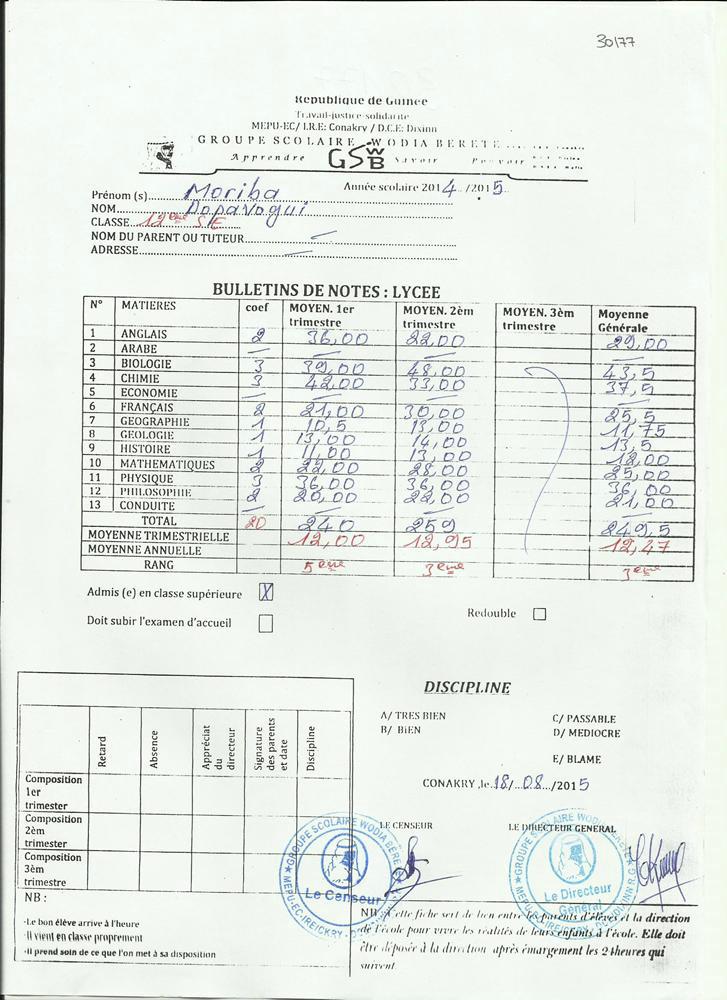 30/77
République de Guinée
Travail-justice-solidarité
MEPU-EC/ I.R.E: Conakry / D.C.E: Dixinn
GROUPE SCOLAIRE WODIA BERETE
Apprendre GSWB Savoir Pouvoir
Année scolaire 2014/2015
Prénom (s) Moriba
NOM Dopavogui
CLASSE 12ème SE
NOM DU PARENT OU TUTEUR
ADRESSE
BULLETINS DE NOTES : LYCEE
N° MATIERES coef MOYEN. 1er trimestre MOYEN. 2èm trimestre MOYEN. 3èm trimestre Moyenne Générale
1 ANGLAIS 2 36,00 22,00 29,00
2 ARABE — — — —
3 BIOLOGIE 3 39,00 48,00 43,5
4 CHIMIE 3 42,00 33,00 37,5
5 ECONOMIE — — — —
6 FRANÇAIS 2 21,00 30,00 25,5
7 GEOGRAPHIE 1 10,5 13,00 11,75
8 GEOLOGIE 1 13,00 14,00 13,5
9 HISTOIRE 1 11,00 13,00 12,00
10 MATHEMATIQUES 2 22,00 28,00 25,00
11 PHYSIQUE 3 36,00 36,00 36,00
12 PHILOSOPHIE 2 20,00 22,00 21,00
13 CONDUITE — — — —
TOTAL 20 240 259 249,5
MOYENNE TRIMESTRIELLE 12,00 12,95 12,47
MOYENNE ANNUELLE
RANG 5ème 3ème 3ème
Admis (e) en classe supérieure X
Redouble
Doit subir l'examen d'accueil
DISCIPLINE
A/ TRES BIEN C/ PASSABLE
B/ BIEN D/ MEDIOCRE
E/ BLAME
CONAKRY ,le 18/ 08 /2015
Retard Absence Appréciat du directeur Signature des parents et date Discipline
Composition 1er trimester
Composition 2èm trimester
Composition 3èm trimestre
LE CENSEUR LE DIRECTEUR GENERAL
GROUPE SCOLAIRE WODIA BERETE
Le Censeur
GROUPE SCOLAIRE WODIA BERETE
Le Directeur Général
NB :
-Le bon élève arrive à l'heure
-Il vient en classe proprement
-Il prend soin de ce que l'on met à sa disposition
NB: Cette fiche sert de lien entre les parents d'élèves et la direction
de l'école pour vivre les réalités de leurs enfants à l'école. Elle doit
être déposée à la direction après émargement les 24heures qui
suivent.